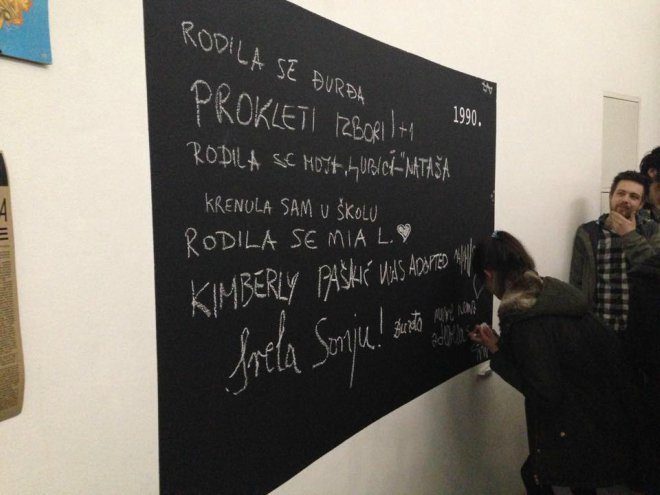 1990.
RODILA SE ĐURĐA
PROKLETI IZBORI! +1
RODILA SE MOJA "LJUBICA" NATAŠA
KRENULA SAM U ŠKOLU
RODILA SE MIA L. ♥
KIMBERLY PAŠKIĆ WAS ADOPTED
Srela Sonju!